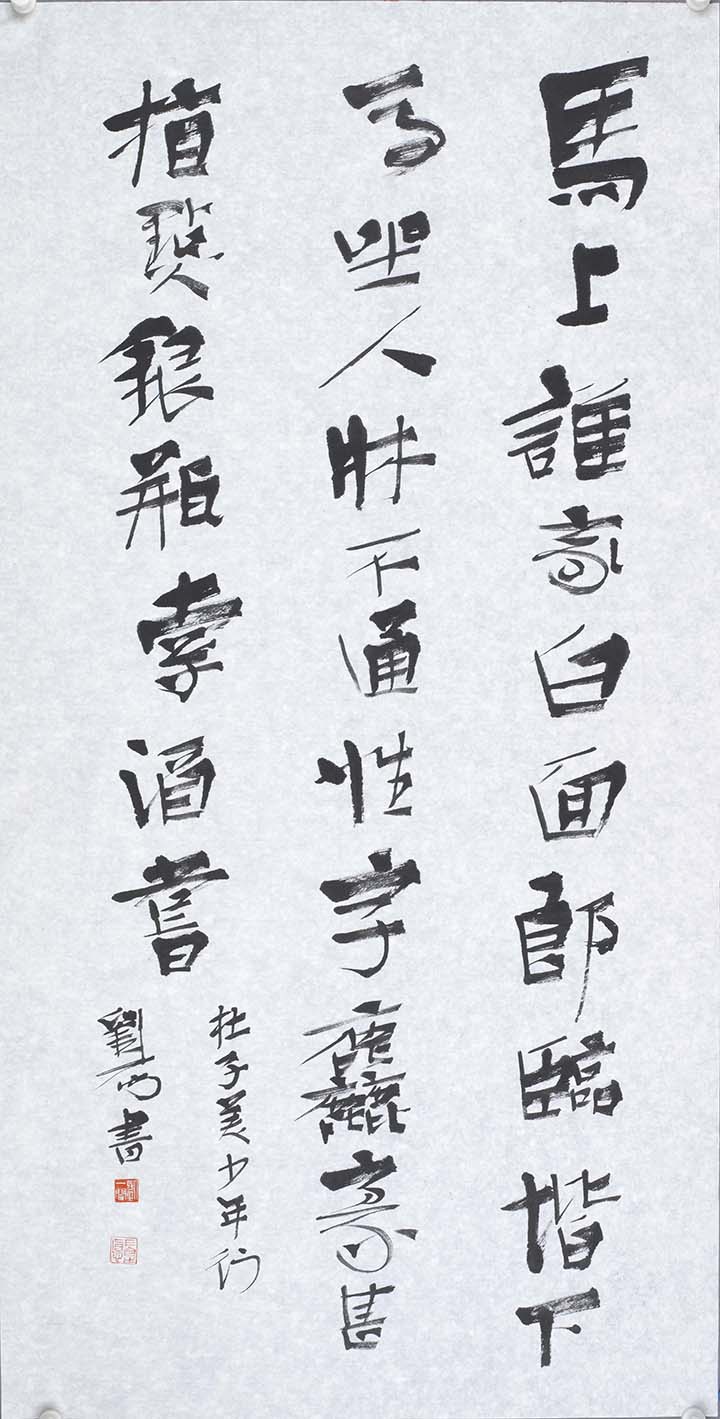 馬上誰家白面郎臨堦下
馬坐人牀不通姓字麤豪甚
指點銀瓶索酒嘗
杜子美少年行
劉書